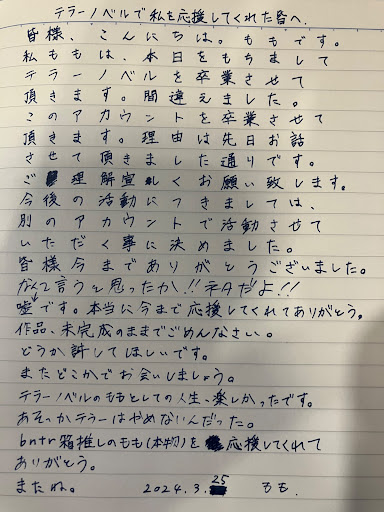 テラーノベルで私を応援してくれた皆へ.
皆様、こんにちは。ももです。
私ももは、本日をもちまして
テラーノベルを卒業させて
頂きます。間違えました。
このアカウントを卒業させて
頂きます。理由は先日お話
させて頂きました通りです。
ご理解宜しくお願い致します。
今後の活動につきましては、
別のアカウントで活動させて
いただく事に決めました。
皆様今までありがとうございました。
なんて言うと思ったか!!ネタだよ!!
嘘です。本当に今まで応援してくれてありがとう。
作品、未完成のままでごめんなさい。
どうか許してほしいです。
またどこかでお会いしましょう。
テラーノベルのももとしての人生、楽しかったです。
あそっかテラーはやめないんだった。
bntr箱推しのもも(本物)を応援してくれて
ありがとう。
またね。 2024.3.25 もも.